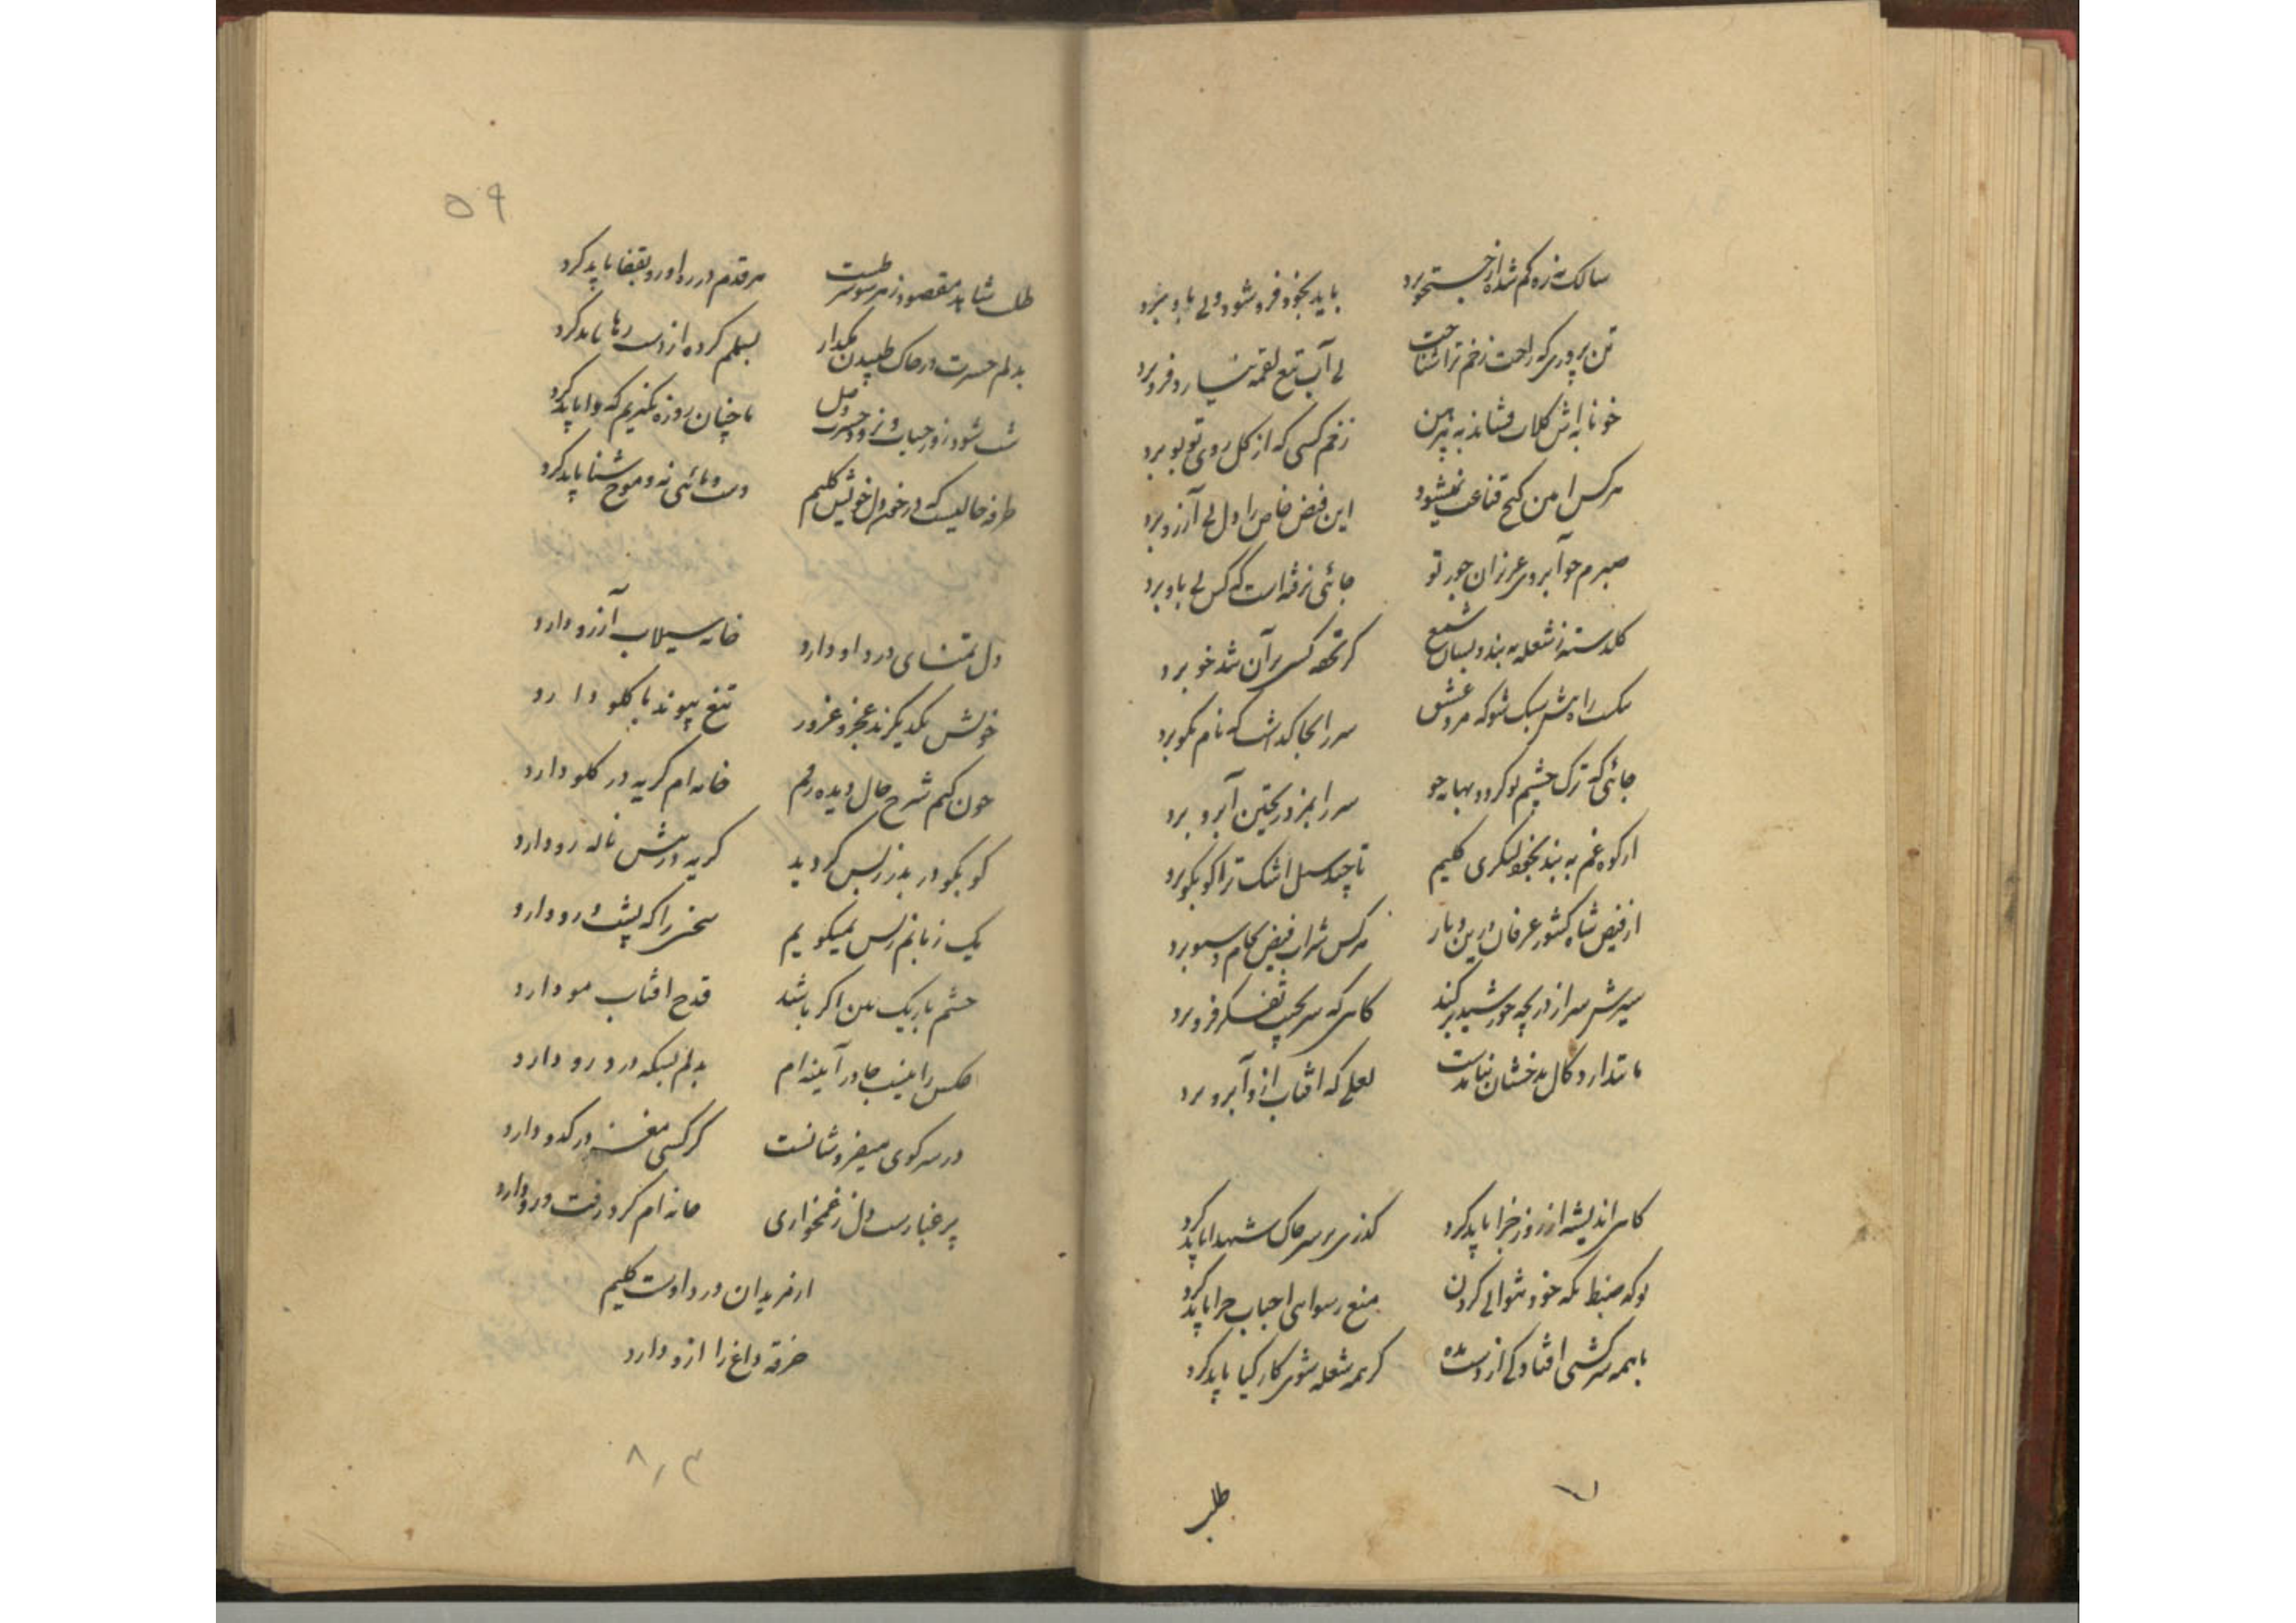 سالک نه ره کم شده از جستجو برد باید بخود فرو شود و پی باو برد
تن پروری که راحت زخم ترا شناخت بی آب تیغ لقمه نیارد فرو برد
خونابه اش کلاب فشاند به پیرهن زخم کسی که از کل روی تو بو برد
هر کس امین کنج قناعت نمیشود این فیض خاص را دل بی آرزو برد
صبرم چو آبروی عزیزان جور تو جائی نرفته است که کس پی باو برد
کلدسته ز شعله به بندد بسان شمع کر تحفه کسی بر آن شد خو برد
راه پیش سبک شو که مرد عشق سر را بجا کذاشت که نام نکو برد
جائی که ترک چشم تو کردد بهانه جو سر را بمزد ریختن آبرو برد
از کوه غم به بند بخود لنکری کلیم تا چند سیل اشک ترا کو بکو برد
از فیض شاه کشور عرفان درین دیار هر کس شراب فیض بجام و سبو برد
سیرش سر از دریچه خورشید بر کند کاهی که سر بجیب تفکر فرو برد
مانند او ز کان بدخشان نیامدست لعلی که افتاب ازو آبرو برد
کاهی اندیشه از روز جزا باید کرد کذری بر سر خاک شهدا باید کرد
تو که ضبط نکه خود نتوانی کردن منع رسوائی احباب چرا باید کرد
با همه سرکشی افتادکی از دست مده کر همه شعله شوی کار کیا باید کرد
طلب
۵۹
طلب شاهد مقصود ز هر سو شرطست هر قدم در ره او رو بقفا باید کرد
بدلم حسرت در خاک طپیدن مکذار بسملم کرده از دست رها باید کرد
نشود روز حیات و نرود حسرت وصل ما چنان روزه نکیریم که وا باید کرد
طرفه حالیست که در خون دل خویش کلیم دست و پائی نه و موج شنا باید کرد
دل تمنای درد او دارد خانه سیلاب آرزو دارد
خویش یکدیکرند عجز و غرور تیغ پیوند با کلو دارد
چون کنم شرح حال دیده رقم خامه ام کریه در کلو دارد
کو بکو در بدر ز بس کردید کریه در پیش ناله رو دارد
یک زبانم ز بس نمیکویم سخنی را که پشت و رو دارد
چشم باریک بین اکر باشد قدح افتاب مو دارد
عکس را نیست جا در آینه ام بدلم بسکه درد رو دارد
در سر کوی میفروشانست کر کسی مغز در کدو دارد
پر غبارست دل ز غمخواری خانه ام کرد رفت و رو دارد
از مریدان درد اوست کلیم
خرقه داغ را ازو دارد